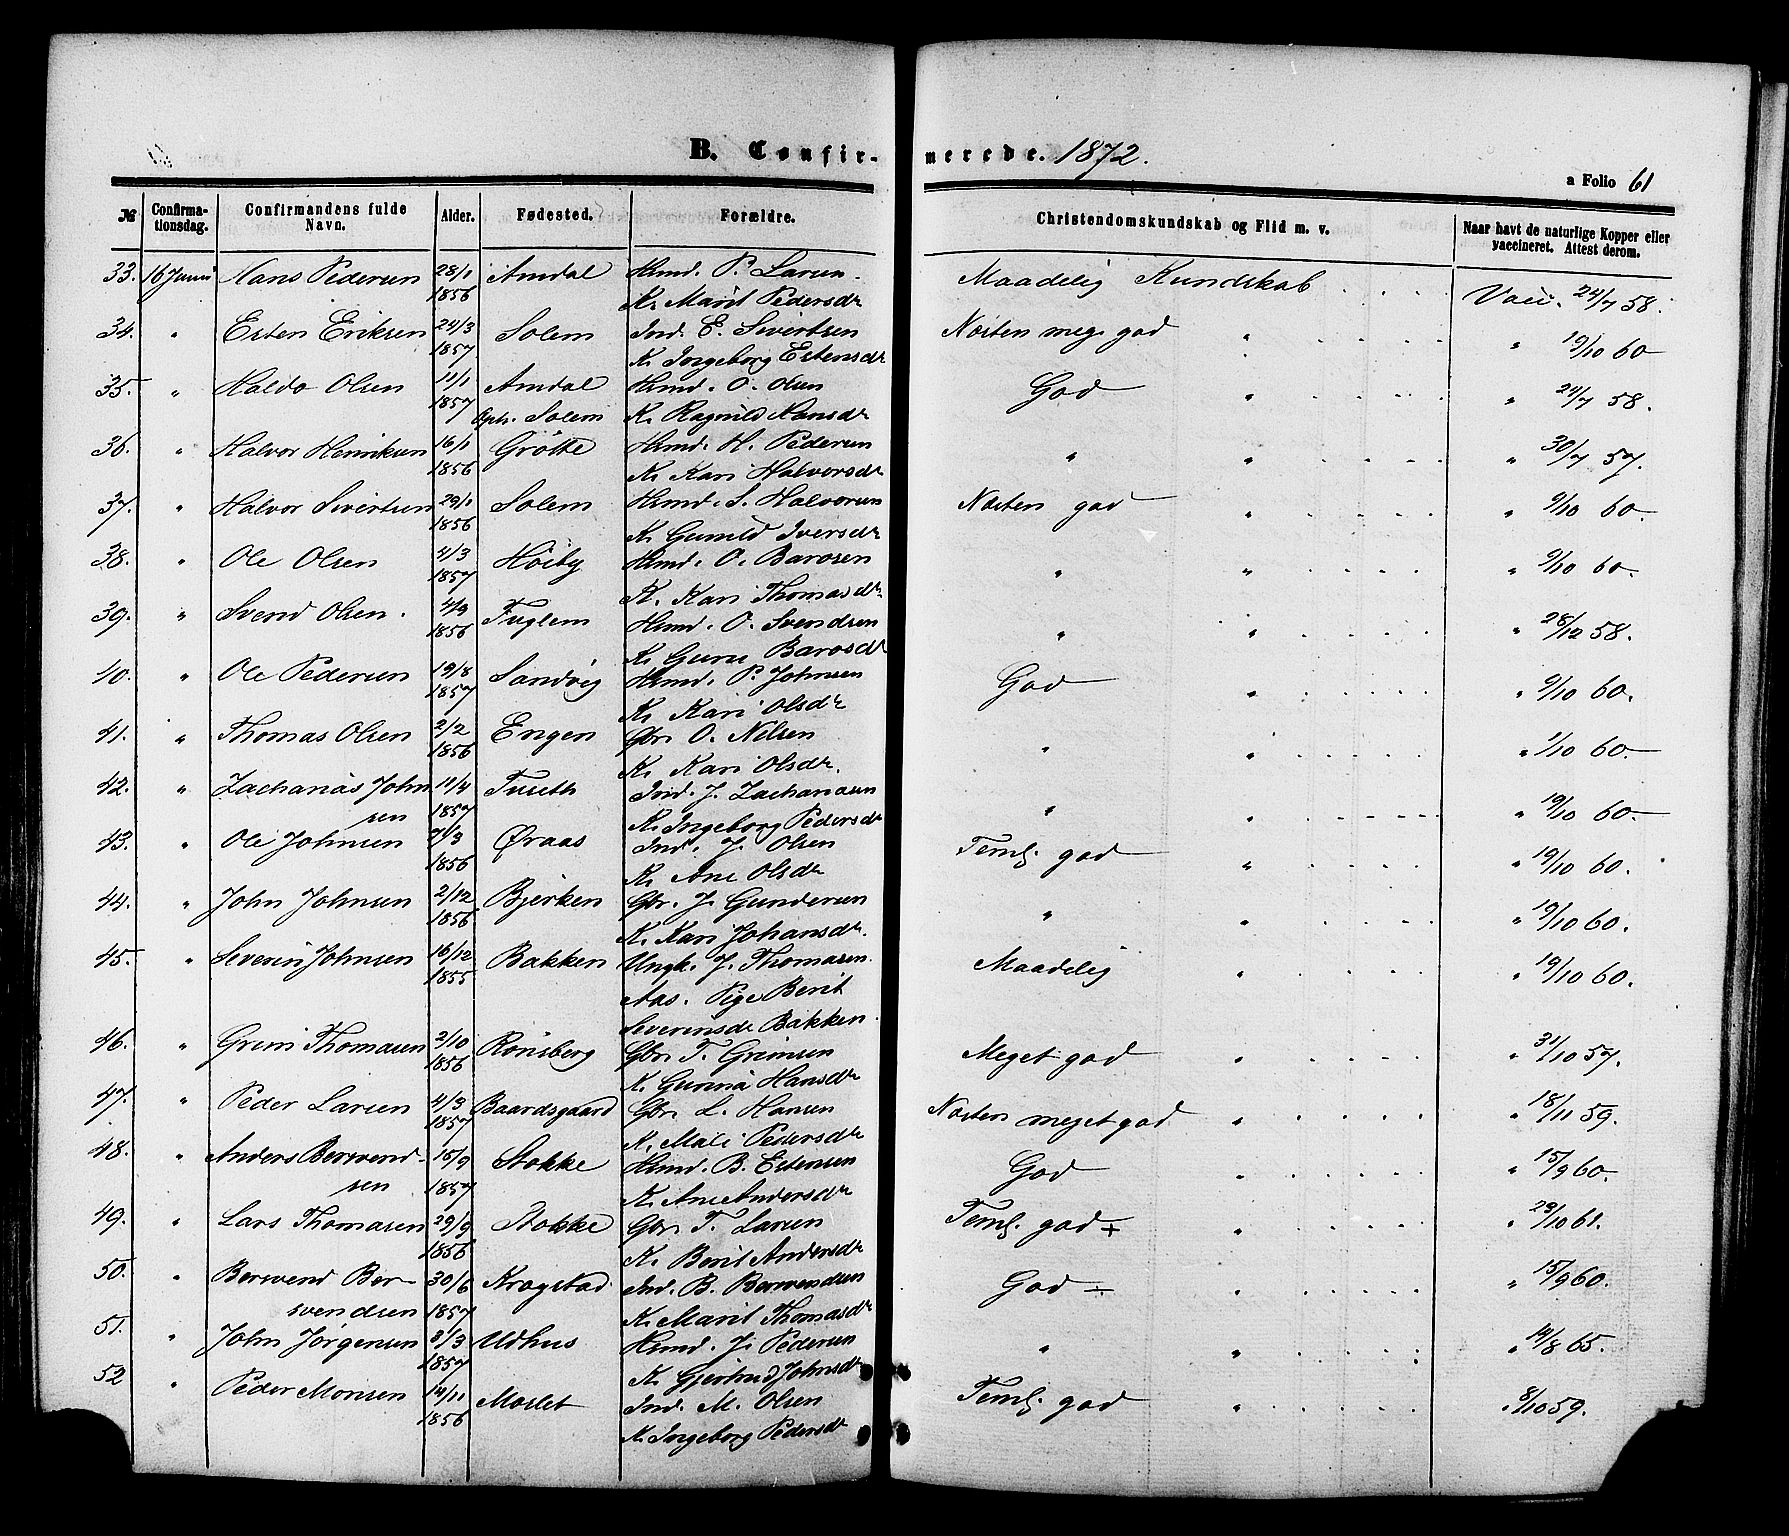 B. Confirmerede. 1872.
a Folio 61
№ Confirmationsdag. Confirmandens fulde Navn. Alder. Fødested. Forældre. Christendomskundskab og Flid m. v. Naar havt de naturlige Kopper eller vaccineret. Attest derom.
33. 16 Juni Hans Pedersen 28/1 Amdal Hsmd. P. Larsen Maadelig Kundskab Vacc. 24/7 58.
1856 K. Marit Pedersdr
34. " Esten Eriksen 24/3 Solem Ind. E. Sivertsen Næsten meg. god " " 19/10 60
1857 K. Ingeborg Estensdr
35. " Haldo Olsen 11/1 Amdal Hsmd. O. Olsen God " " 24/7 58.
1857 Oph. Solem K. Ragnild Hansdr
36. " Halvor Henriksen 16/1 Grötte Hsmd. H. Pedersen " " " 30/7 57.
1856 K. Kari Halvorsdr
37. " Halvor Sivertsen 29/1 Solem Hsmd. S. Halvorsen Næsten god " " 9/10 60.
1856 K. Gunild Iversdr
38. " Ole Olsen 4/3 Höiby Hsmd. O. Barosen " " " 9/10 60.
1857 K. Kari Thomasdr
39. " Svend Olsen. 4/9 Fuglem Hsmd. O. Svendsen " " " 28/12 58.
1856 K. Guru Barosdr
40. " Ole Pedersen 19/8 Sandvig Hsmd. P. Johnsen God " " 9/10 60.
1857 K. Kari Olsdr
41. " Thomas Olsen 2/2 Engen Gbr. O. Nilsen " " " 1/10 60.
1856 K. Kari Olsdr.
42. " Zacharias John 11/4 Tuseth Ind. J. Zachariasen " " " 19/10 60.
sen 1857 K. Ingeborg Pedersdr
43. " Ole Johnsen 7/3 Øraas Ind. J. Olsen Teml. god " " 19/10 60.
1856 K. Ane Olsdr
44. " John Johnsen 2/12 Bjerken Gbr. J. Gundersen " " " 19/10 60.
1856 K. Kari Johansdr.
45. " Severin Johnsen 16/12 Bakken Ungk. J. Thomasen. Maadelig " " 19/10 60.
1855 Aas. Pige Berit
Severinsdr Bakken.
46. " Grim Thomasen 2/10 Rönsberg Gbr. T. Grimsen Meget god " " 31/10 57.
1856 K. Hansdr
47. " Peder Larsen 4/3 Baardsgaard Gbr. L. Hansen Næsten meget god " " 18/11 59.
1857 K. Mali Pedersdr
48. " Anders Bersvend- 15/9 Stokke Hsmd. B. Estensen God " " 15/9 60.
sen 1857 K. Ane Andersdr
49. " Lars Thomasen 29/9 Stokke Gbr. T. Larsen Teml. god + " " 29/10 61.
1856 K. Berit Andersdr
50. " Bersvend Ber- 30/6 Krogstad Ind. B. Bersvendsen God ÷ " 15/9 60.
svendsen 1857 K. Marit Thomasdr
51. " John Jörgensen 3/3 Udhus Hsmd. J. Pedersen " " " 14/8 65.
1857 K. Gjertrud Johnsdr
52 " Peder Monsen 14/11 Moslet Ind. M. Olsen Teml. god " " 8/10 59.
1856 K. Ingeborg Pedersdr